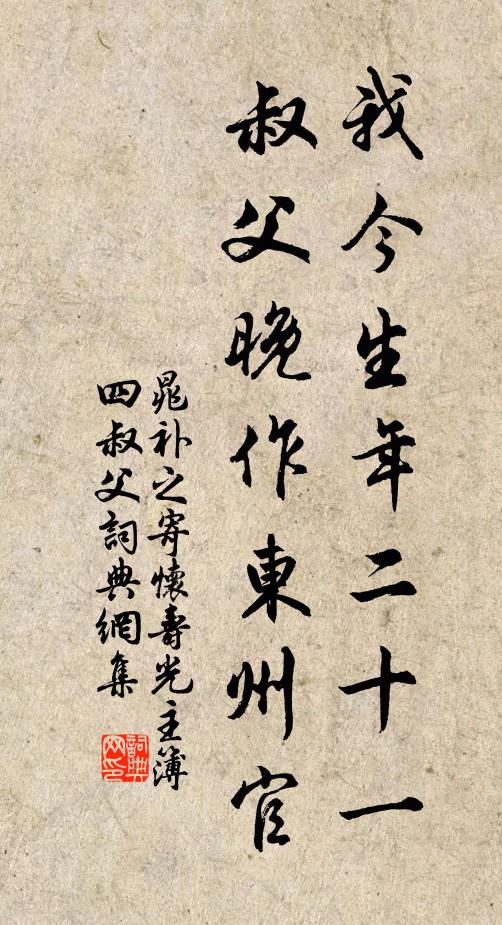 我今生年二十一
叔父晚作東州官
晁补之寄懷壽光主簿
四叔父詞典網集
詞典
网印